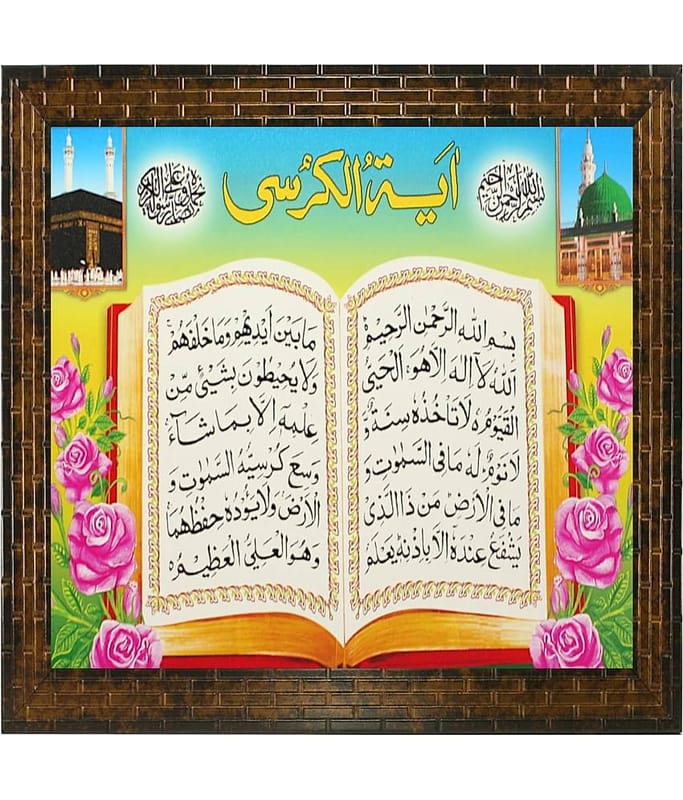 اٰیۃُ الکُرسی
بسم اللہ الرحمن الرحیم
نحمدہ و نصلی علی رسولہ الکریم
بِسْمِ اللهِ الرَّحْمٰنِ الرَّحِیْمِ
اَللهُ لَاۤ اِلٰهَ اِلَّا هُوَ اَلْحَیُّ
الْقَیُّوْمُ ە لَا تَاْخُذُهٗ سِنَةٌ وَّ
لَا نَوْمٌ لَهٗ مَا فِی السَّمٰوٰتِ وَ
مَا فِی الْاَرْضِ مَنْ ذَا الَّذِیْ
یَشْفَعُ عِنْدَهٗۤ اِلَّا بِاِذْنِهٖ یَعْلَمُ
مَا بَیْنَ اَیْدِیْهِمْ وَمَا خَلْفَهُمْ
وَلَا یُحِیْطُوْنَ بِشَیْئٍ مِّنْ
عِلْمِهٖۤ اِلَّا بِمَا شَآءَ
وَسِعَ كُرْسِیُّهُ السَّمٰوٰتِ وَ
الْاَرْضَ وَلَا یَؤُدُهٗ حِفْظُهُمَا
وَهُوَ الْعَلِیُّ الْعَظِیْمُ ە